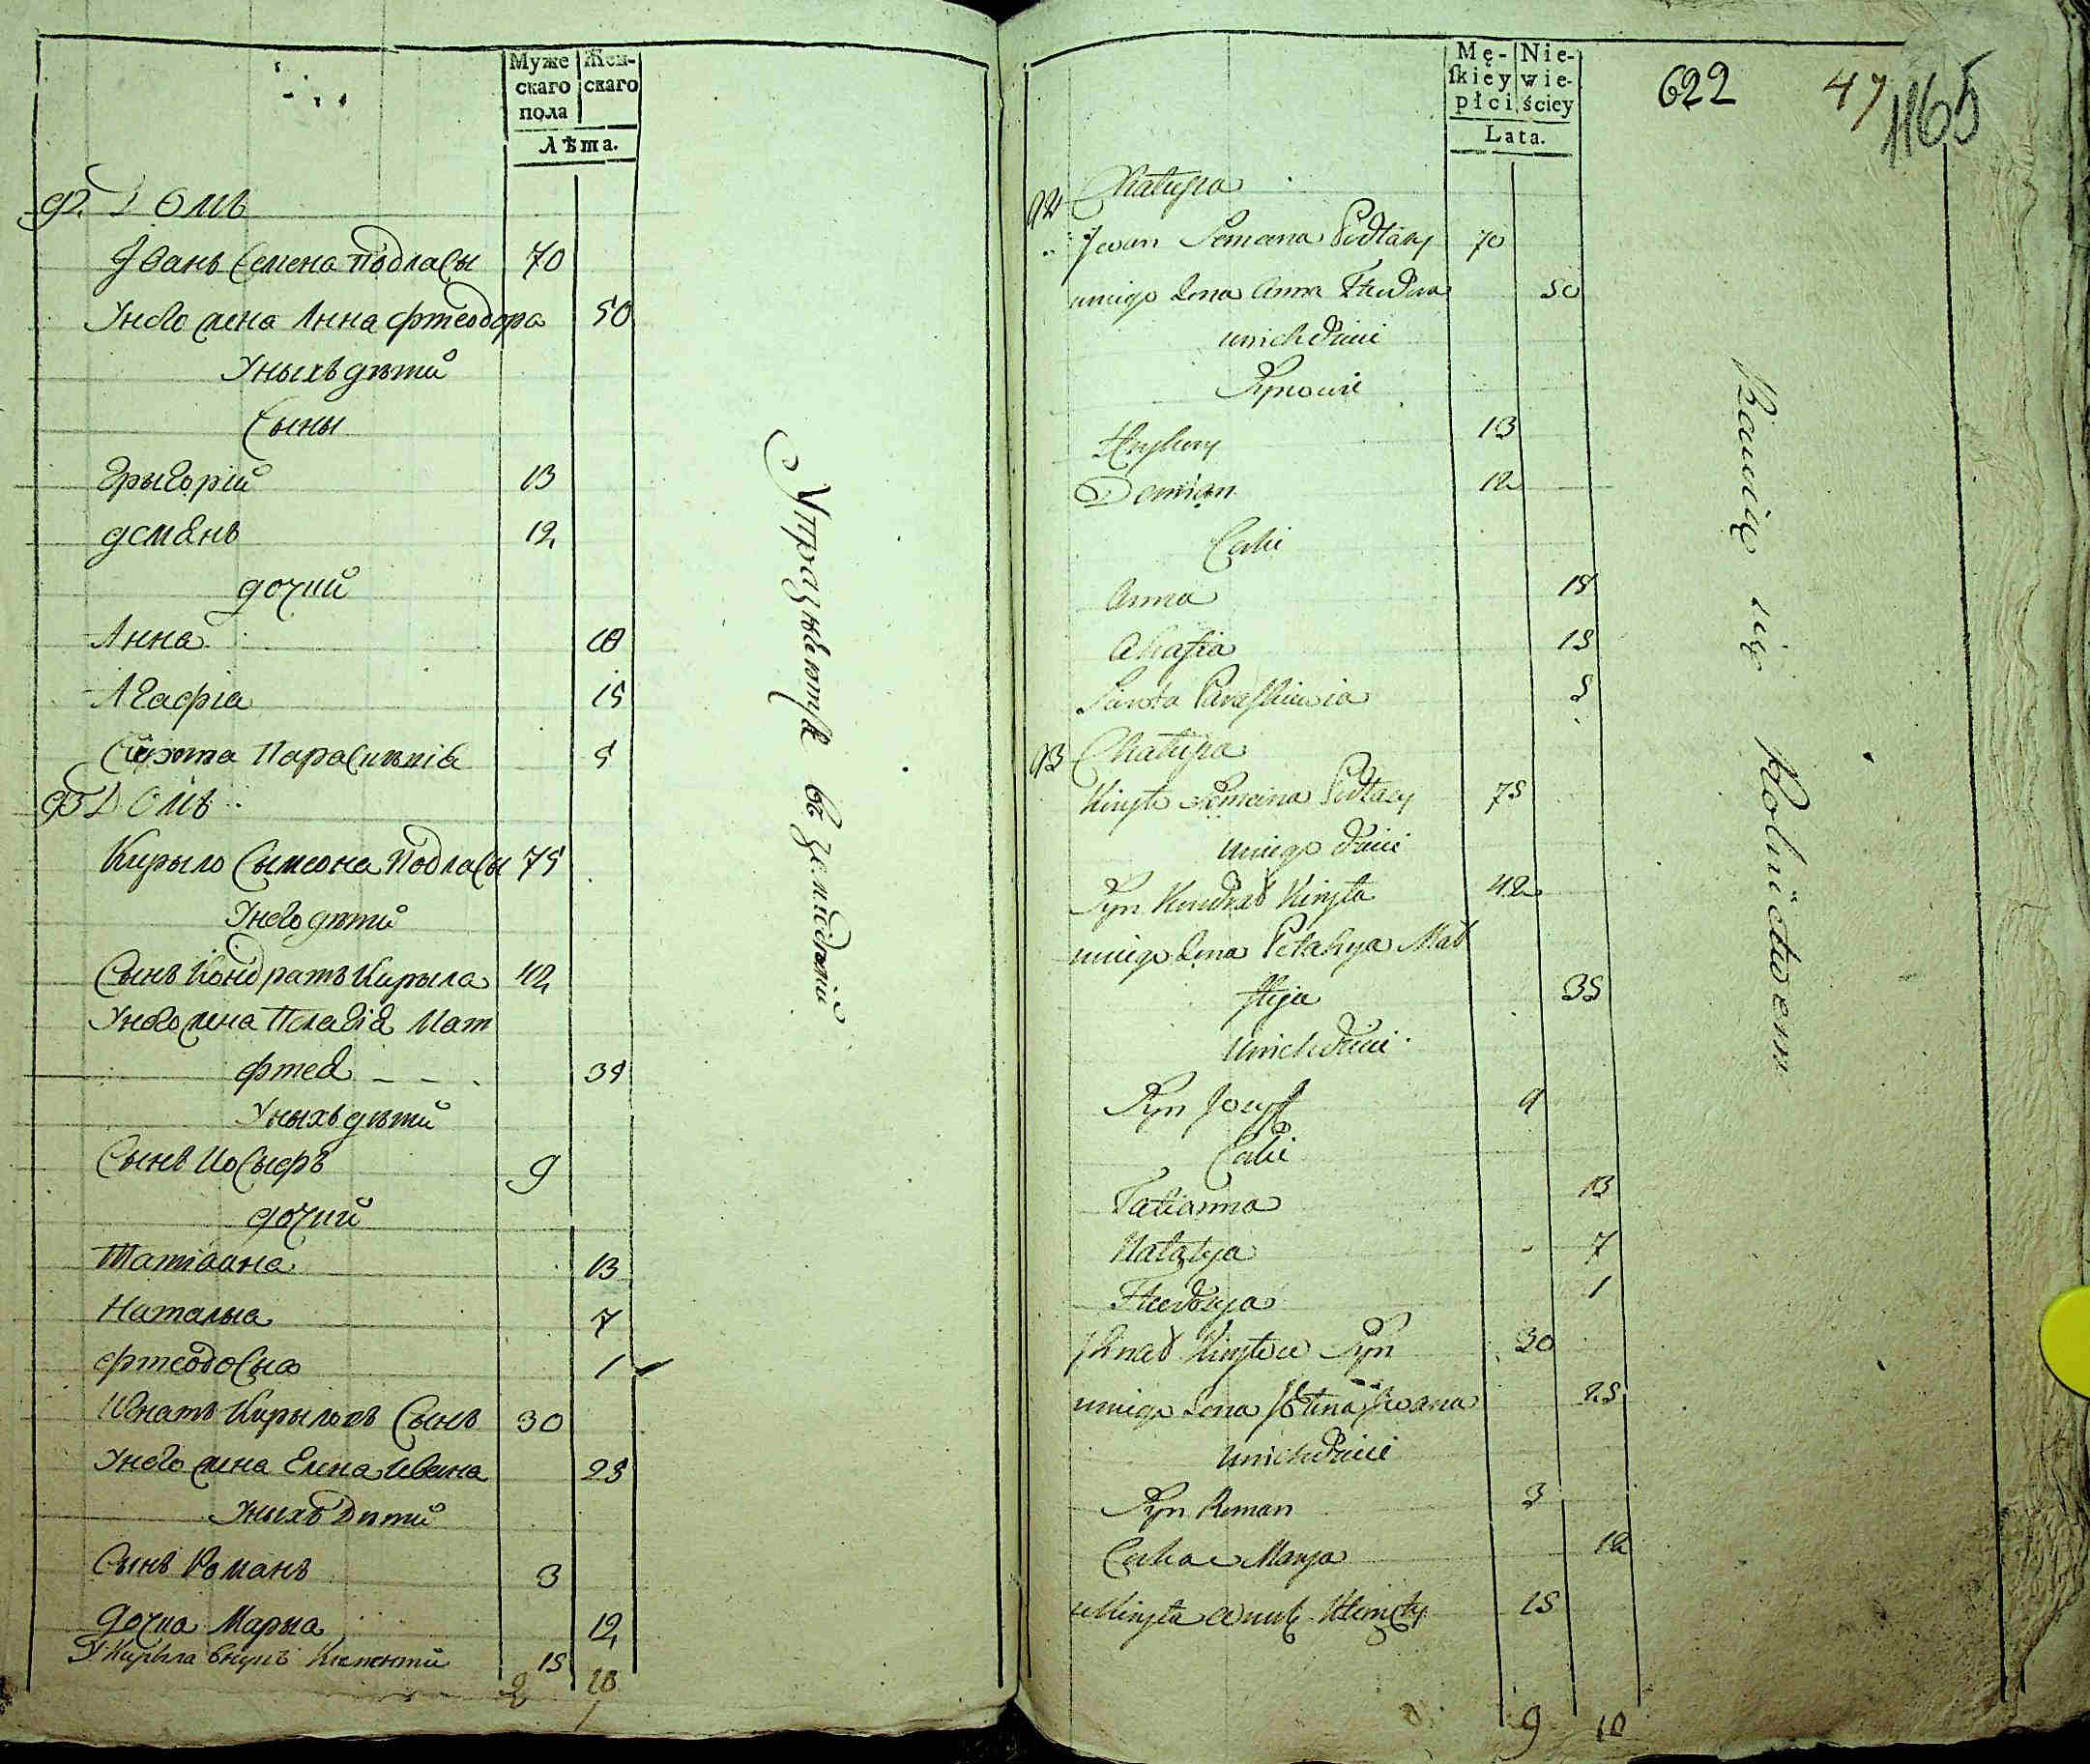 Муже
скаго
пола
Жен-
скаго
Лѣта.
92. Домъ
Iванъ Семена Подласы 70
Унего жена Анна Фтеодора 50
Уныхъ дѣти
Сыны
Грыгорiй 13
Демянъ 12
дочки
Анна 18
Агафiа 15
Сирота Параскевiа 5
93 Домъ
Кирыло Сымеона Подласы 75
Унего дѣти
Сынъ Кондратъ Кирыла 42
Унего жена Пелагiа Мат
фтеа 35
Уныхъ дѣти
Сынъ Иосыфъ 9
дочки
Татiанна 13
Наталыа 7
Фтеодосыа 1
Игнатъ Кирыловъ Сынъ 30
Унего жена Елена Ивана 25
Уныхъ Дѣти
Сынъ Романъ 3
дочка Марыа 12
У Кирыла внукъ Климентiй 15
9 10
Упражняютса
Mę-
skiey
płci
Nie-
wie-
ściey
Lata.
622
47
1165
92 Chałupa
Jwan Semena Podłasy 70
uniego żona Anna Fteodora 50
unich dzieci
Synowie
Hryhory 13
Demian 12
Corki
Anna 18
Ahafia 15
Sirota Paraskiewia 5
93 Chałupa
Kiryło Semeona Podłasy 75
uniego dzieci
Syn Kondrat Kiryła 42
uniego żona Pelahya Mat
fteja 35
unich dzieci
Syn Jozyf 9
Corki
Tatianna 13
Natalya 7
Fteodosya 1
Jhnat Kiryłow Syn 30
uniego żona Jwana 25
unich dzieci
Syn Roman 3
Corka Marya 12
u Kiryła wnuk Klimenty 15
9 10
Bawią się Rolnictwem